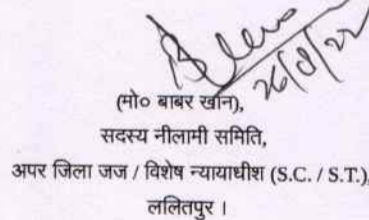 26/9/22
(मो० बाबर खान),
सदस्य नीलामी समिति,
अपर जिला जज / विशेष न्यायाधीश (S.C. / S.T.),
ललितपुर ।